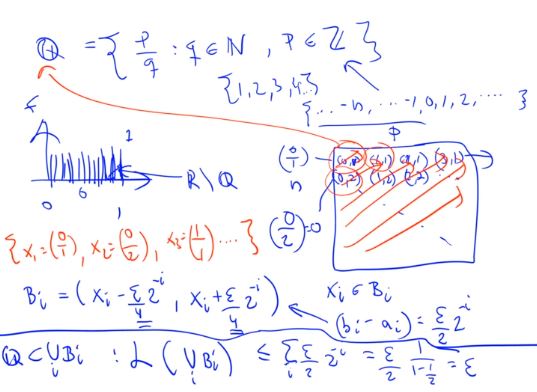 ℚ = { p/q : q ∈ ℕ , p ∈ ℤ }
{1, 2, 3, 4..}
{ ... -n, ... -1, 0, 1, 2, .... }
f
1
p
0
0
1
R \ Q
n
(0/1)
(0,1) (1,1) (2,1) (3,1)
(0,2) (1,2) (2,2)
(0/2) = 0
{ x₁=(0/1), x₂=(0/2), x₃=(1/1) .... }
Bᵢ = ( xᵢ - ε/4 2⁻ⁱ , xᵢ + ε/4 2⁻ⁱ )
xᵢ ∈ Bᵢ
(bᵢ - aᵢ) = ε/2 2⁻ⁱ
ℚ ⊂ ∪ᵢ Bᵢ : L ( ∪ᵢ Bᵢ ) ≤ Σᵢ ε/2 2⁻ⁱ = ε/2 1/(1-1/2) = ε